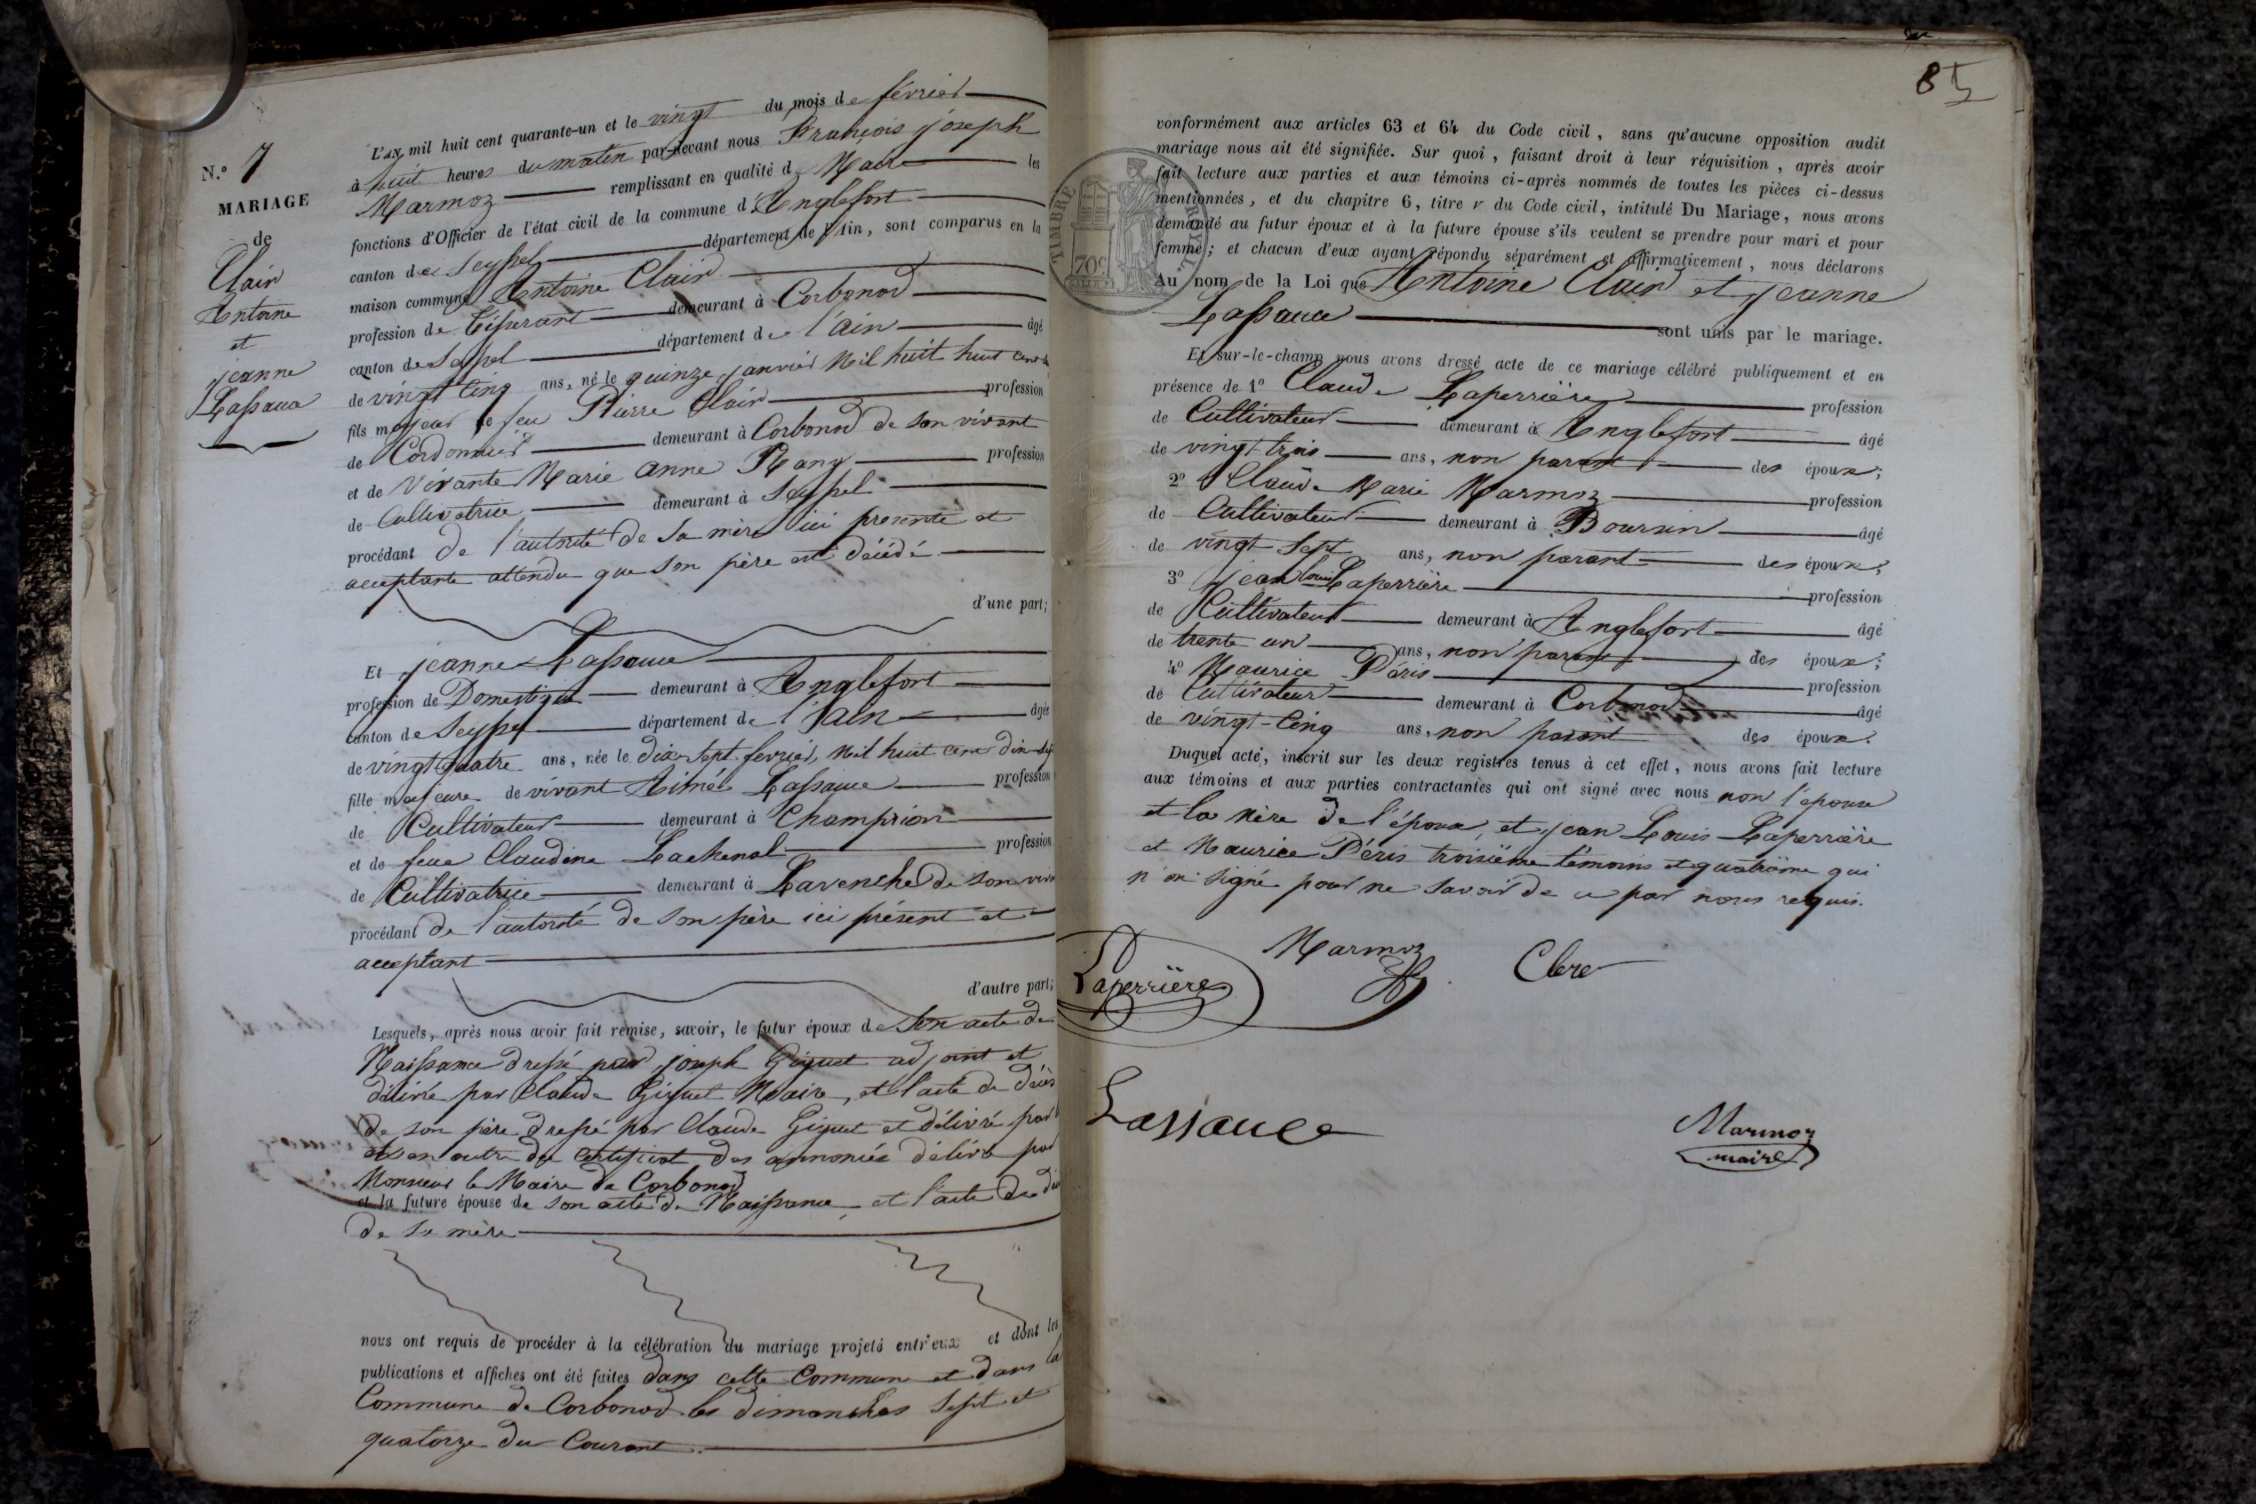 N.° 7
MARIAGE
de
Clair
Antoine
et
jeanne
Lassaua
L'AN mil huit cent quarante-un et le vingt du mois de février
à huit heures du matin par-devant nous François joseph
Marmoz remplissant en qualité de Maire les
fonctions d'Officier de l'état civil de la commune d'Anglefort
canton de Seyssel département de l'Ain, sont comparus en la
maison commune Antoine Clair
profession de Tisserant demeurant à Corbonod
canton de Seyssel département de l'ain âgé
de vingt cinq ans, né le quinze janvier Mil huit huit cent
fils majeur de feu Pierre Clair profession
de Cordonnier demeurant à Corbonod de son vivant
et de vivante Marie anne profession
de Cultivatrice demeurant à Seyssel
procédant de l'autorité de sa mère ici presente et
acceptante attendu que son père est décédé
d'une part;
Et jeanne Lassaua
profession de Domestique demeurant à Anglefort
canton de Seyssel département de l'ain âgée
de vingt quatre ans, née le dix sept fevrier, Mil huit cent dix sept
fille majeure de vivant Aimé Lassaua profession
de Cultivateur demeurant à Champrion
et de feue Claudine Lachenal profession
de Cultivatrice demeurant à Lavenche de son viv
procédant de l'autorité de son père ici présent et
acceptant
d'autre part;
Lesquels, après nous avoir fait remise, savoir, le futur époux de son acte de
Naissance dressé par joseph Giguet adjoint et
délivré par Claude Giguet Maire, et l'acte de décès
de son père dressé par Claude Giguet et délivré par
en outre du certificat des annonces délivré par
Monsieur le Maire de Corbonod
et la future épouse de son acte de Naissance, et l'acte de
de sa mère
nous ont requis de procéder à la célébration du mariage projeté entr'eux et dont les
publications et affiches ont été faites dans cette Commune et dans la
Commune de Corbonod les dimanches sept et
quatorze du Courant.
85
conformément aux articles 63 et 64 du Code civil, sans qu'aucune opposition audit
mariage nous ait été signifiée. Sur quoi, faisant droit à leur réquisition, après avoir
fait lecture aux parties et aux témoins ci-après nommés de toutes les pièces ci-dessus
mentionnées, et du chapitre 6, titre v du Code civil, intitulé Du Mariage, nous avons
demandé au futur époux et à la future épouse s'ils veulent se prendre pour mari et pour
femme; et chacun d'eux ayant répondu séparément et affirmativement, nous déclarons
TIMBRE ROYAL
70c
Au nom de la Loi que Antoine Clair et jeanne
Lassaua sont unis par le mariage.
Et sur-le-champ nous avons dressé acte de ce mariage célébré publiquement et en
présence de 1° Claude Laperrière profession
de Cultivateur demeurant à Anglefort âgé
de vingt trois ans, non parant des époux;
2° Claude Marie Marmoz profession
de Cultivateur demeurant à Boursin âgé
de vingt sept ans, non parant des époux;
3° jean louis Laperrière profession
de Cultivateur demeurant à Anglefort âgé
de trente un ans, non parant des époux;
4° Maurice Péris profession
de Cultivateur demeurant à Corbonod âgé
de vingt-Cinq ans, non parant des époux.
Duquel acte, inscrit sur les deux registres tenus à cet effet, nous avons fait lecture
aux témoins et aux parties contractantes qui ont signé avec nous non l'épouse
et la mère de l'époux, et jean Louis Laperrière
et Maurice Péris troisième témoins et quatrième qui
n'on signé pour ne savoir de ce par nous requis.
Laperrière Marmoz Clere
Lassauce
Marmoz
maire